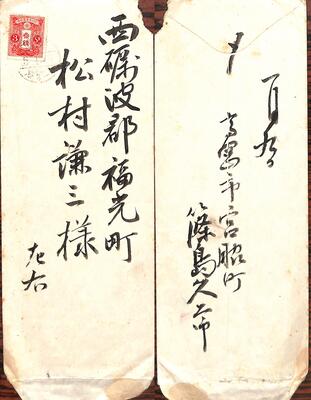 西礪波郡福光町
松村謙三様
左右
一月九日
高岡市宮脇町
篠島久